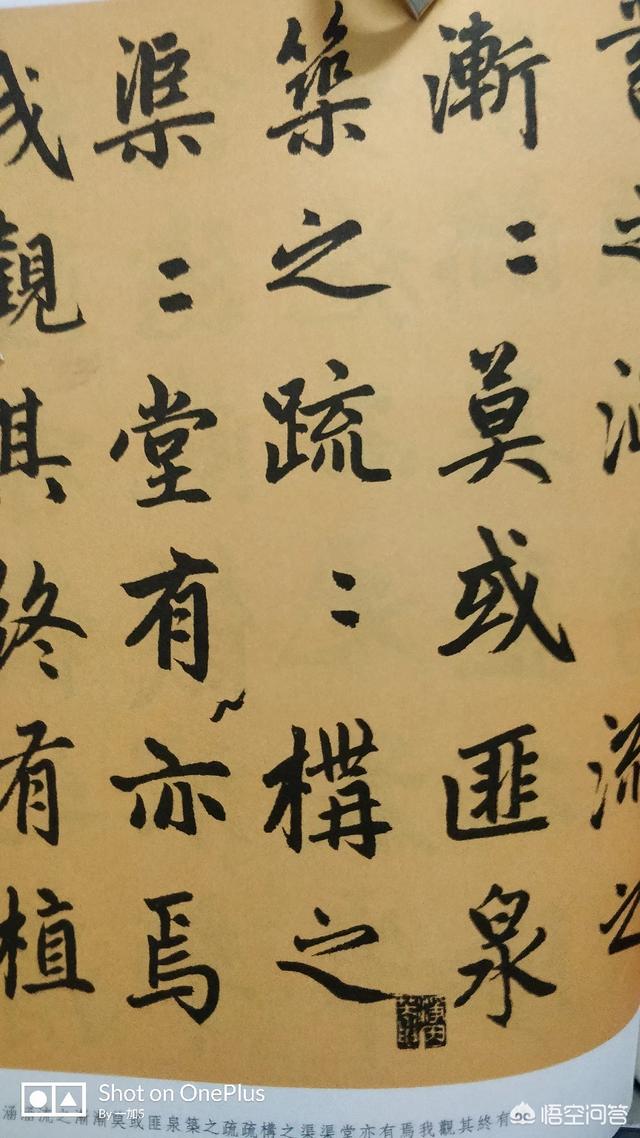 之涵流之
漸〻莫或匪泉
築之疏〻構之
渠〻堂有亦焉
我觀其終有植
涵涵流之漸漸莫或匪泉築之疏疏構之渠渠堂亦有焉我觀其終有
Shot on OnePlus
By 一加5
悟空问答